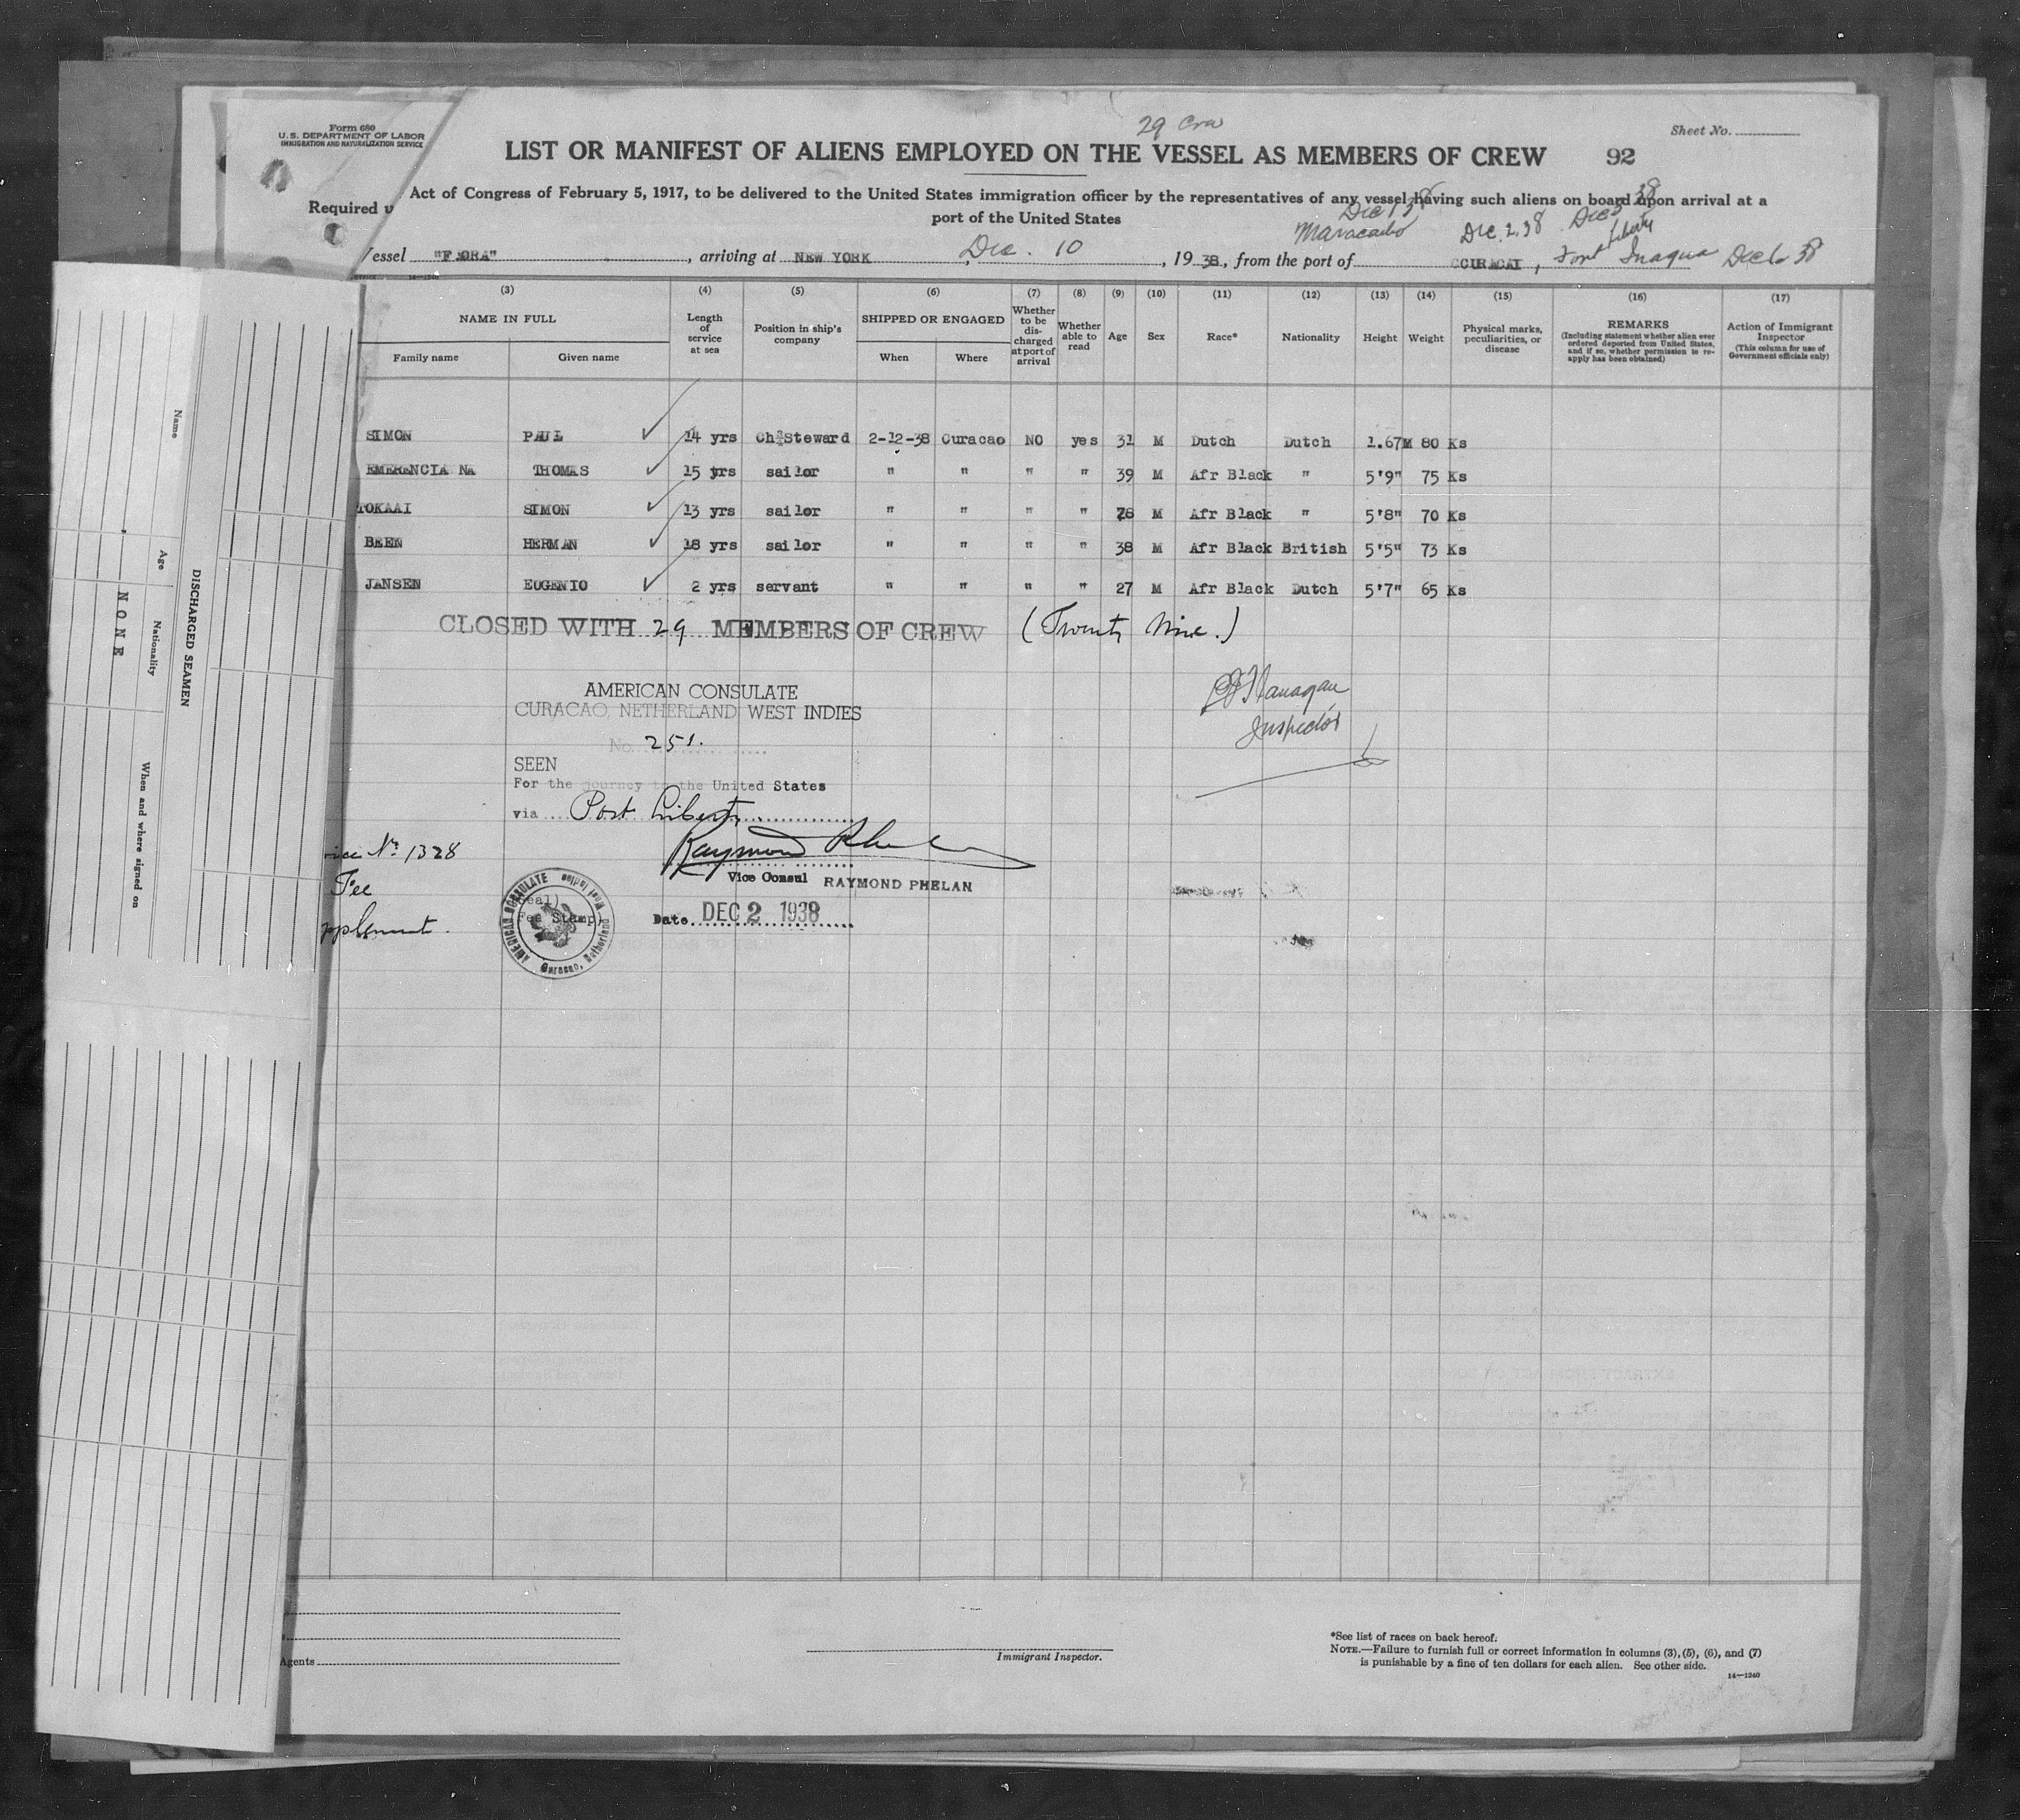 Form 680
U. S. DEPARTMENT OF LABOR
IMMIGRATION AND NATURALIZATION SERVICE
29 Crew
Sheet No.
LIST OR MANIFEST OF ALIENS EMPLOYED ON THE VESSEL AS MEMBERS OF CREW 92
Required u Act of Congress of February 5, 1917, to be delivered to the United States immigration officer by the representatives of any vessel having such aliens on board upon arrival at a
port of the United States
Dec 1 38 Dec 5 38
Maracaibo Dec. 2. 38 Liberté
Vessel "FLORA", arriving at NEW YORK, Dec. 10, 19 38, from the port of CURACAO, Fort Inagua Dec 6 38
(3) (4) (5) (6) (7) (8) (9) (10) (11) (12) (13) (14) (15) (16) (17)
NAME IN FULL
Family name Given name
Length of service at sea
Position in ship's company
SHIPPED OR ENGAGED
When Where
Whether to be discharged at port of arrival
Whether able to read
Age
Sex
Race*
Nationality
Height
Weight
Physical marks, peculiarities, or disease
REMARKS
(Including statement whether alien ever ordered deported from United States, and if so, whether permission to reapply has been obtained)
Action of Immigrant Inspector
(This column for use of Government officials only)
SIMON PAUL 14 yrs Ch: Steward 2-12-38 Curacao NO yes 31 M Dutch Dutch 1.67M 80 Ks
EMERENCIA NA THOMAS 15 yrs sailor " " " " 39 M Afr Black " 5'9" 75 Ks
TOKAAI SIMON 13 yrs sailor " " " " 28 M Afr Black " 5'8" 70 Ks
BEEN HERMAN 18 yrs sailor " " " " 38 M Afr Black British 5'5" 73 Ks
JANSEN EUGENIO 2 yrs servant " " " " 27 M Afr Black Dutch 5'7" 65 Ks
CLOSED WITH 29 MEMBERS OF CREW (Twenty Nine.)
AMERICAN CONSULATE
CURACAO, NETHERLAND WEST INDIES
No. 251.
Inspector
SEEN
For the journey to the United States
via Port Liberty
Raymond Phelan
Vice Consul RAYMOND PHELAN
Date DEC 2 1938
vice No 1328
Fee
pplement.
(Seal)
Fee Stamp)
AMERICAN CONSULATE Curacao, Netherland West Indies
DISCHARGED SEAMEN
Name
Age
Nationality
When and where signed on
NONE
Agents
Immigrant Inspector.
*See list of races on back hereof.
NOTE.—Failure to furnish full or correct information in columns (3), (5), (6), and (7)
is punishable by a fine of ten dollars for each alien. See other side.
14—1240